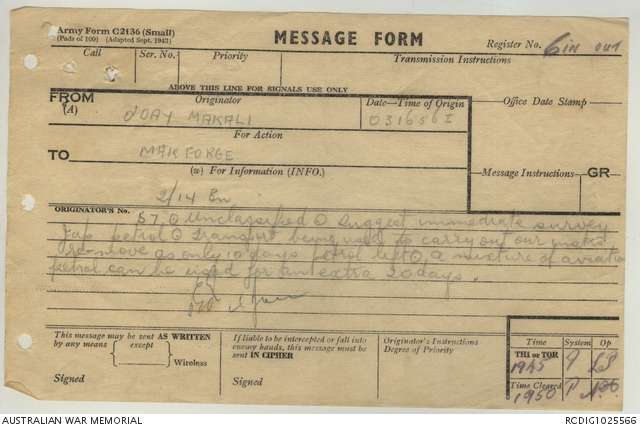 Army Form C2136 (Small)
(Pads of 100) (Adapted Sept. 1942)
MESSAGE FORM
Register No. 6 in out
Call
Ser. No.
Priority
Transmission Instructions
ABOVE THIS LINE FOR SIGNALS USE ONLY
FROM
(A)
Originator
O'DAY MAKALI
Date—Time of Origin
031656 I
Office Date Stamp
For Action
TO
MAKFORGE
(w) For Information (INFO.)
Message Instructions
GR
2/14 Bn
ORIGINATOR'S No.
57 O unclassified O Suggest immediate survey
Jap petrol O Transport being used to carry out our
as only 10 days petrol left O a mixture of aviation
petrol can be used for an extra 20 days.
This message may be sent AS WRITTEN
by any means
except
Wireless
Signed
If liable to be intercepted or fall into
enemy hands, this message must be
sent IN CIPHER
Signed
Originator's Instructions
Degree of Priority
Time
System
Op
THI or TOR
1945
Time Cleared
1950
AUSTRALIAN WAR MEMORIAL
RCDIG1025566